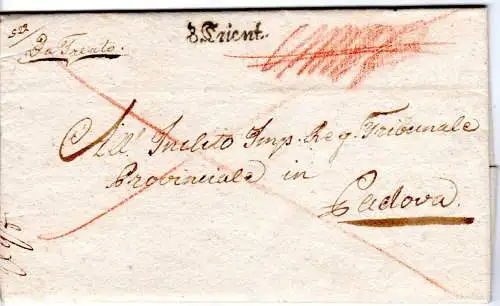 v. Trient.
Da Trento.
All' Inclito Imp. Reg. Tribunale
Provinciale in
Padova.